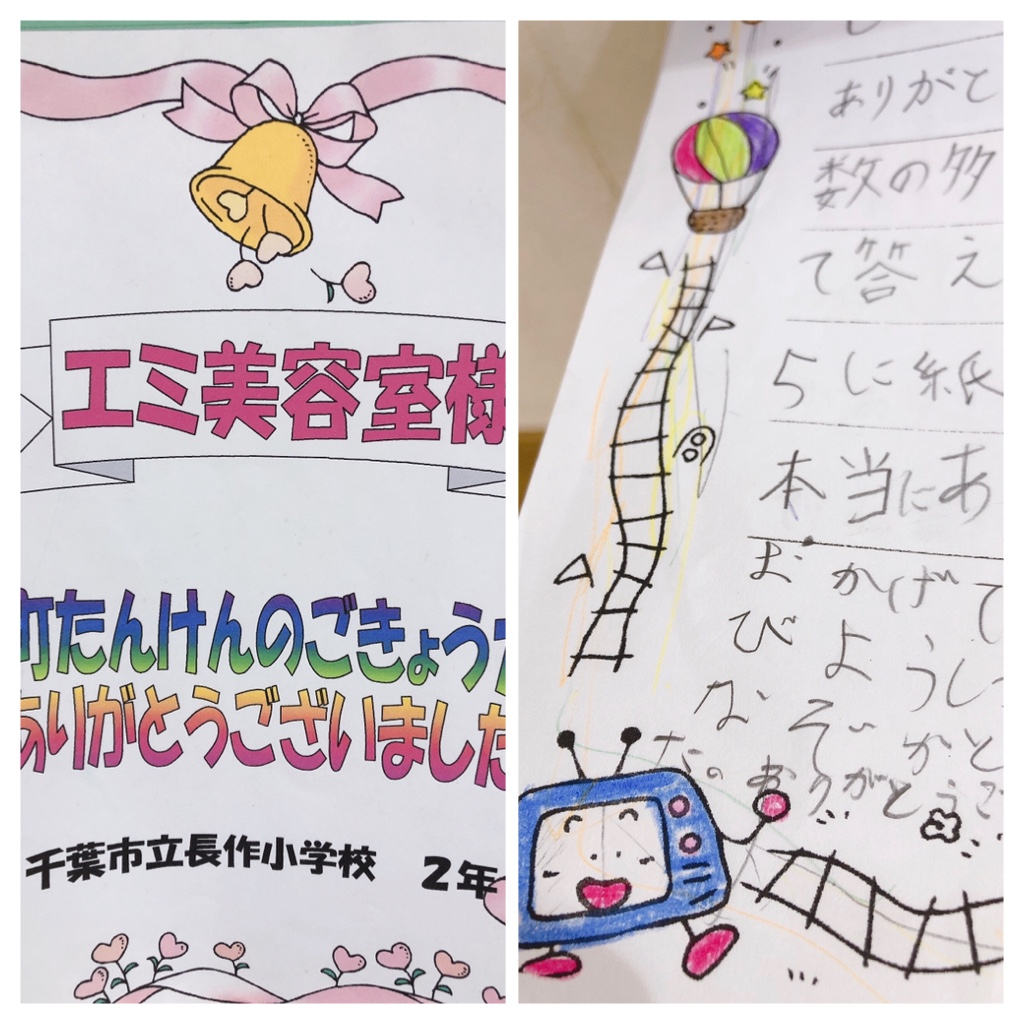 エミ美容室様
町たんけんのごきょう
ありがとうございました
千葉市立長作小学校 2年
ありがと
数の多
て答え
らに紙
本当にあ
おかげで
びようし
なぞかと
ありがとうご